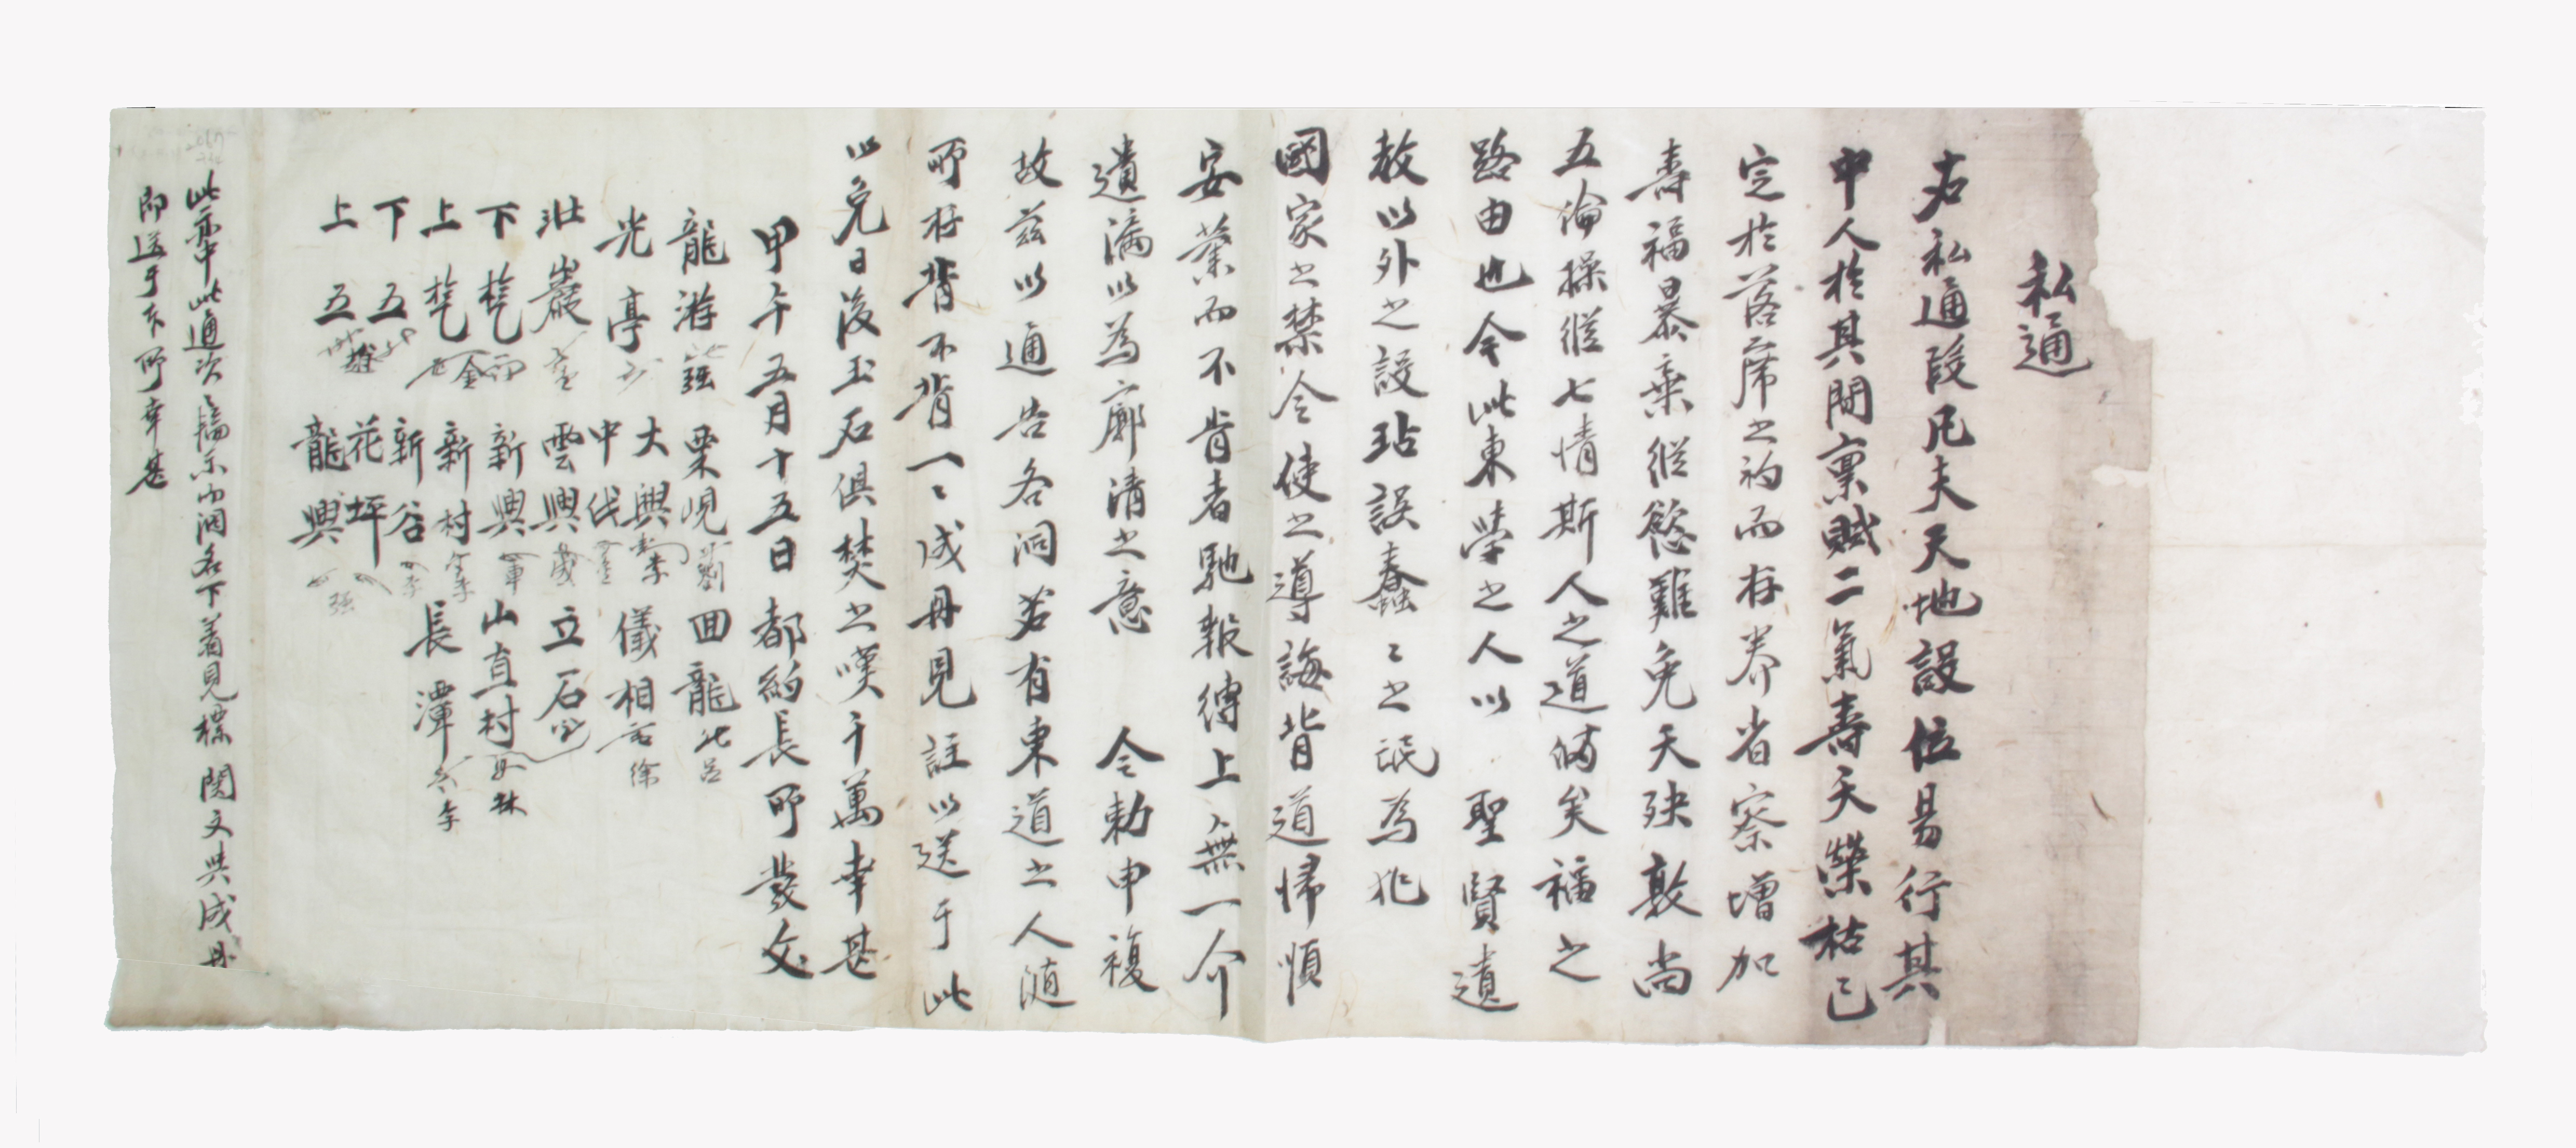 私通
右私通段凡夫天地設位易行其
中人於其間稟賦二氣壽夭榮枯已
定於落席之初而存養省察增加
壽福暴棄縱慾難免夭殃敦尚
五倫操縱七情斯人之道備矣福之
路由也今此東學之人以 聖賢遺
教以外之說玷誤蠢〻之氓為非
國家之禁令使之導誨背道歸順
安業而不肯者馳報縛上無一介
遺漏以為廓清之意 令勅申複
故茲以通告各洞若有東道之人隨
所存背不背一〻成冊見註以送于此
以免日後玉石俱焚之嘆千萬幸甚
甲午五月十五日都約長所發文
龍游 强 栗峴 劉 回龍 北 呂
光亭 大興 李 儀相 徐
中伐
壯巖 雲興 立石
下樁 新興 山直村 林
上樁 金 新村 李 長潭 李
下五 新谷 李
花坪
上五 龍興 强
此亦中此通次〻輪示而洞名下着見標 関文共成冊
即送于本所幸甚